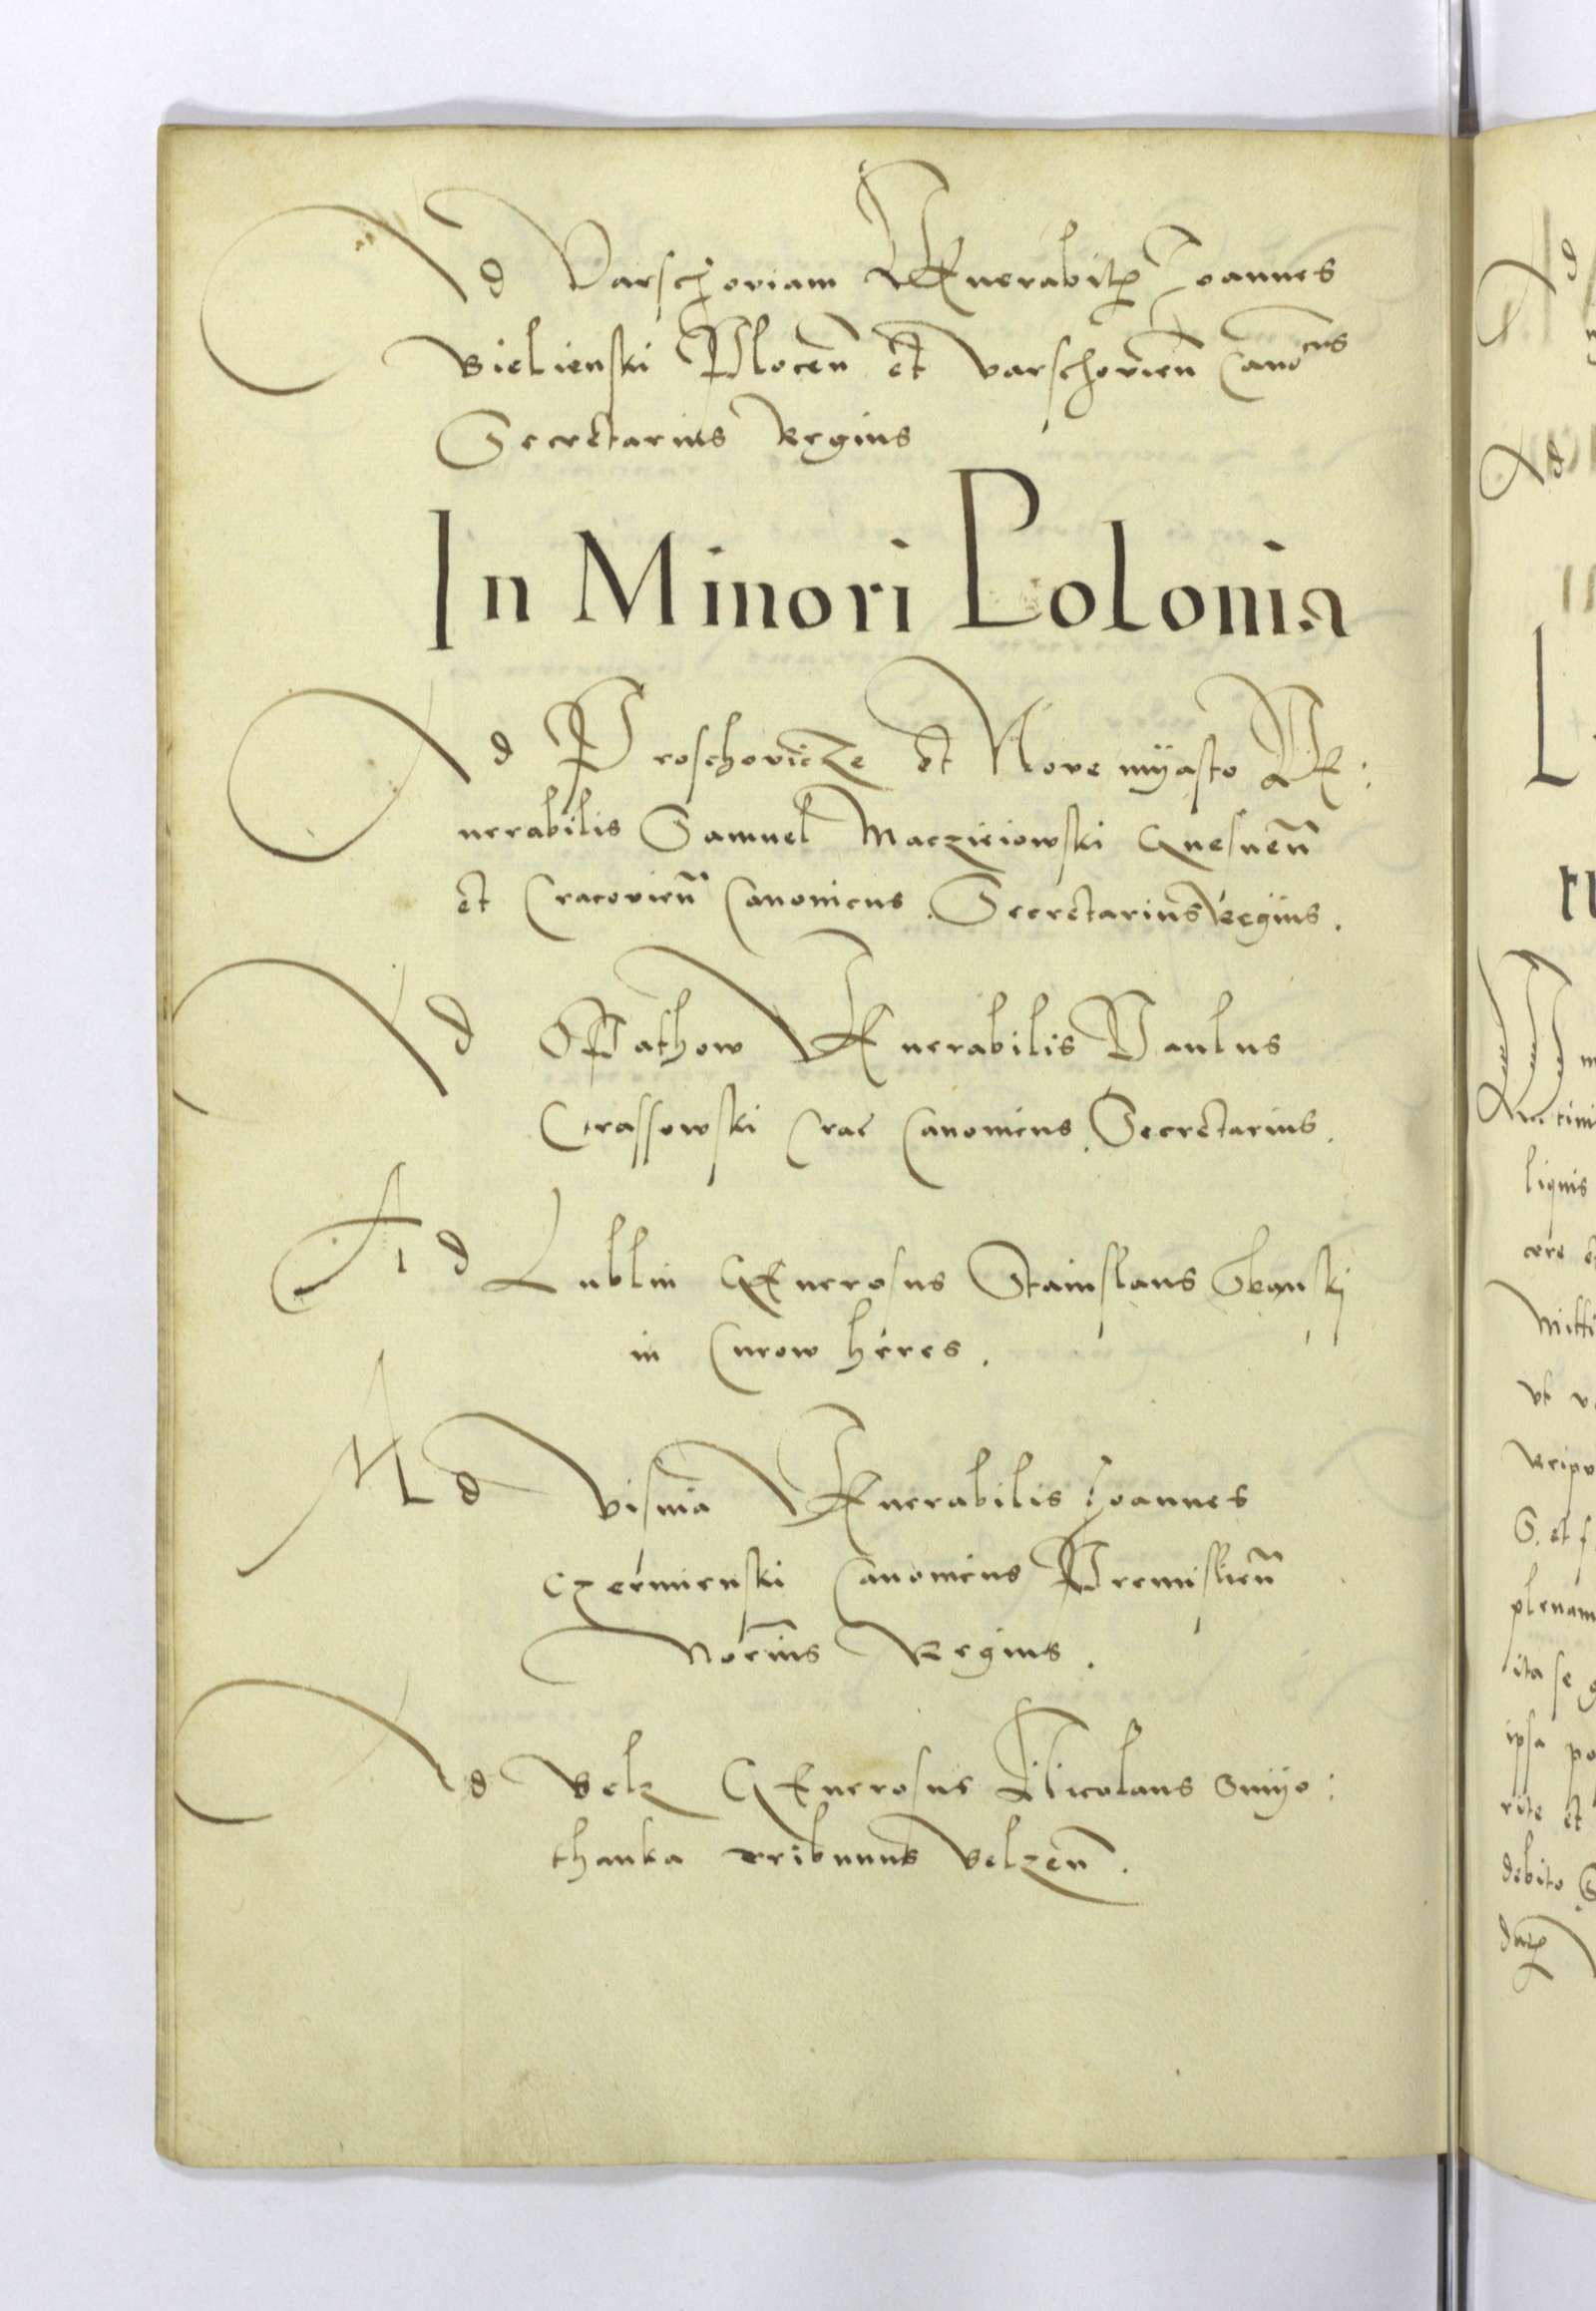 Ad Varschoviam VEnerabilis Joannes
Bielienski Plocen et Varschovien Canocus
Secretarius Regius
In Minori Polonia
Ad Proschovicze et Nove myasto VE:
nerabilis Samuel Maczieiowski Gnesnen
et Cracovien Canonicus. Secretarius Regius.
Ad OPathow VEnerabilis Paulus
Crassowski Crac Canonicus. Secretarius.
Ad Lublin GEnerosus Stanislaus
in Curow heres.
Ad Visnia VEnerabilis Joannes
Czermienski Canonicus Premislien
Norius Regius.
Ad Belz GEnerosus Nicolaus Smyo:
thanka tribunus Belzen.